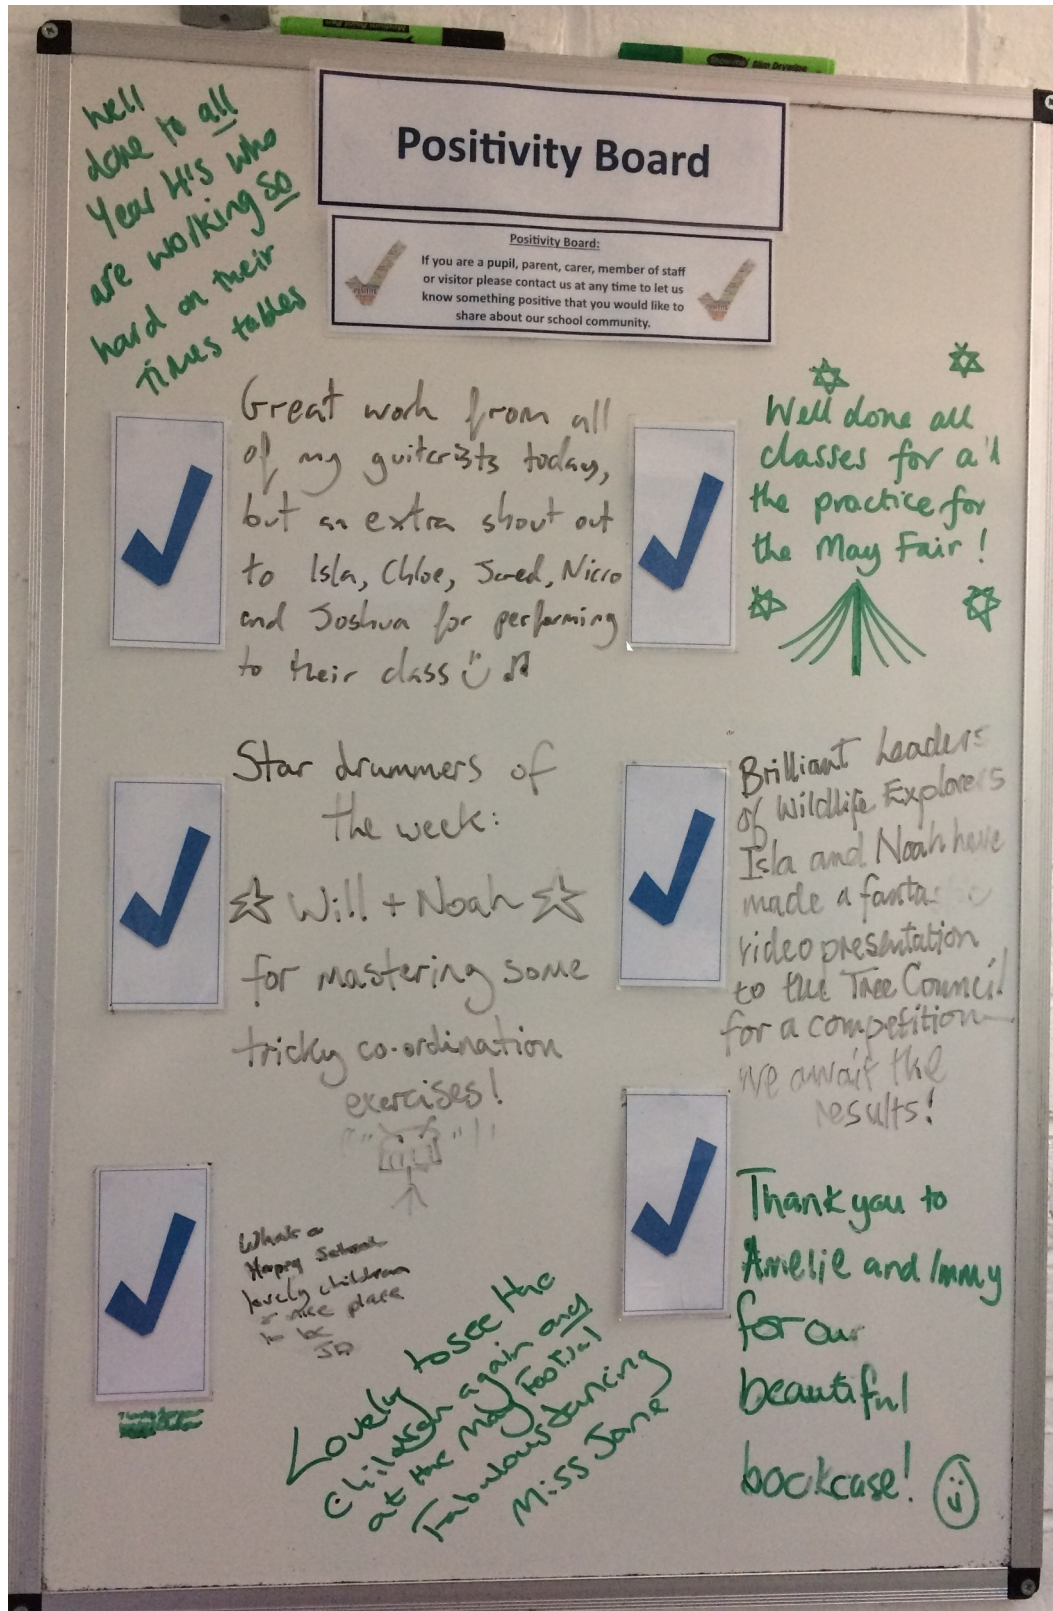 Positivity Board
Positivity Board:
If you are a pupil, parent, carer, member of staff
or visitor please contact us at any time to let us
know something positive that you would like to
share about our school community.
Well
done to all
Year 4's who
are working so
hard on their
times tables
Great work from all
of my guitarists today,
but an extra shout out
to Isla, Chloe, Jared, Nicro
and Joshua for performing
to their class
Well done all
classes for all
the practice for
the May Fair!
Star drummers of
the week:
Will + Noah
for mastering some
tricky co-ordination
exercises!
Brilliant Leaders
of Wildlife Explorers
Isla and Noah have
made a
video presentation
to the Tree Council
for a competition
we await the
results!
What a
Happy School
lovely children
a nice place
to be
Lovely to see the
Children again
at the May
Fabulous dancing
Miss Jane
Thank you to
Amelie and Immy
for our
beautiful
bookcase!
Slim Drywipe